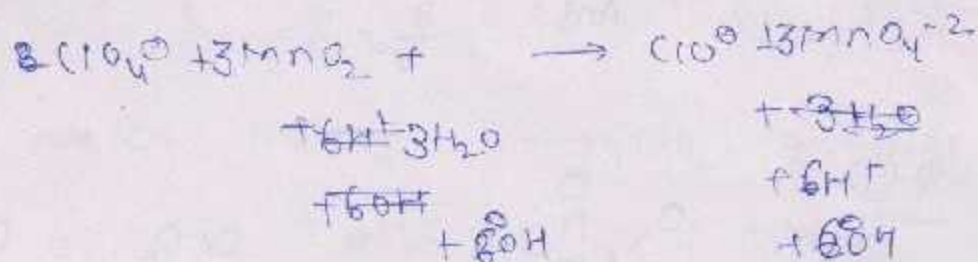 ClO₄⊖ + 3MnO₂ + ⟶ ClO⊖ + 3MnO₄⁻²
+6H⁺ 3H₂O + 3H₂O
+6OH + 6H⁺
+ 6O⊖H + 6O⊖H